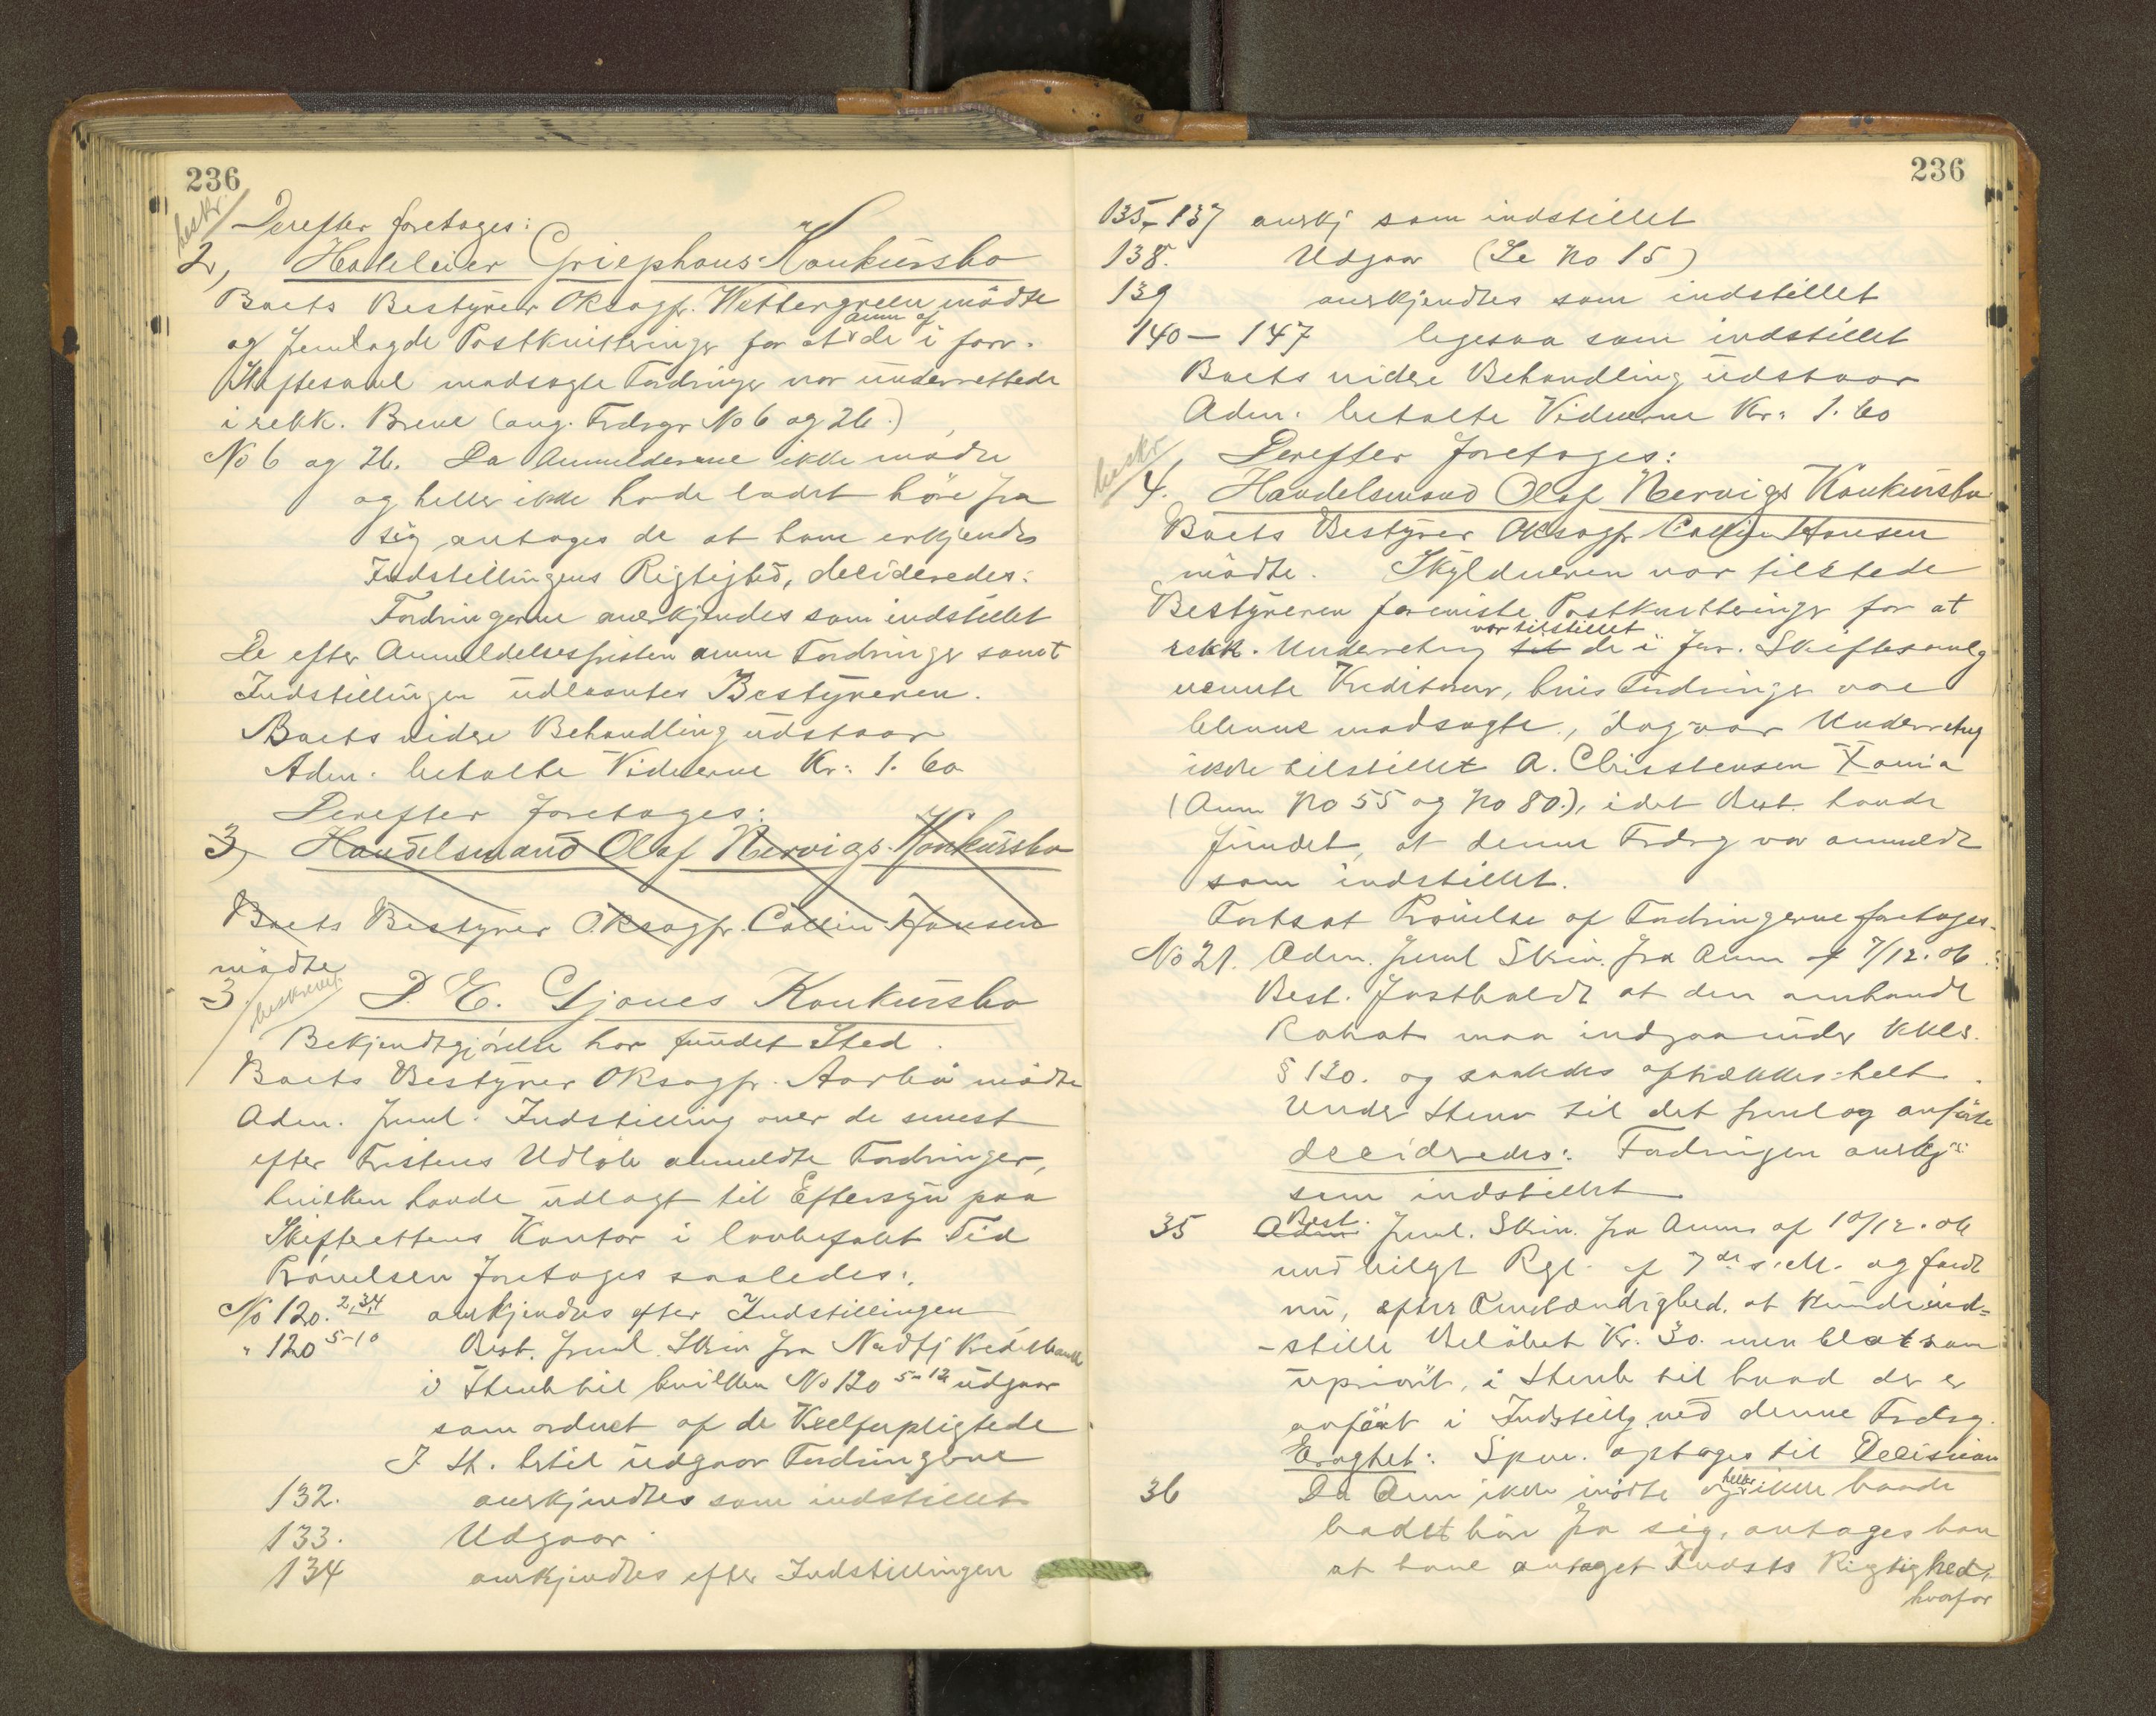 236
beskr.
Derefter foretages:
2, Hoteleier Griephans Konkursbo
Boets Bestyrer OKsagfr. Wettergreen mödte
og fremlagde Postkvitteringer for at anm af de i forr.
Skiftesaml modsagte Fordringer var underrettede
i rekk. Breve (ang. Frdrgr No 6 og 26.)
No 6 og 26. Da Anmelderene ikke mödte
og heller ikke havde ladet höre fra
sig antages de at have erkjendt
Indstillingens Rigtighed, decideredes:
Fordringerne anerkjendes som indstillet
De efter Anmeldelsesfristen anm Fordringer samt
Indstillingen udlaantes Bestyreren.
Boets videre Behandling udstaar
Adm. betalte Vidnerne Kr: 1.60
Derefter foretages:
3, Handelsmand Olaf Nervigs Konkursbo
Boets Bestyrer O.Ksagfr. Collin Hansen
mödte
3. beskrevet P. E. Gjones Konkursbo
Bekjendtgjörelse har fundet Sted.
Boets Bestyrer OKsagfr. Aarbu mödte
Adm. freml. Indstilling over de senest
efter Fristens Udlöb anmeldte Fordringer,
hvilken havde udlagt til Eftersyn paa
Skifterettens Kontor i lovbefalet Tid
Prövelsen foretages saaledes:
No 120. 2,3,4 anerkjendes efter Indstillingen
" 120 5-10 Best. freml. Skriv fra Nordfj Kreditbank
i Henh til hvilken No 120 5-12 udgaar
som ordnet af de Vexelforpligtede
I H. hertil udgaar Fordringerne
132. anerkjendtes som indstillet
133. Udgaar.
134 anerkjendtes efter Indstillingen
236
135-137 anerkj som indstillet
138. Udgaar (Se No 15)
139 anerkjendtes som indstillet
140-147 ligesaa som indstillet
Boets videre Behandling udstaar
Adm. betalte Vidnerne Kr: 1.60
beskr
Derefter foretages:
4. Handelsmand Olaf Nervigs Konkursbo
Boets Bestyrer OKsagfr Collin Hansen
mödte. Skyldneren var tilstede
Bestyreren foreviste Postkvitteringer for at
rekk. Underretng var tilstillet de i forr. Skiftesamlg
nævnte Kreditorer, hvis Fordringer vare
blevne modsagte, dog var Underretng
ikke tilstillet A. Christensen Xania
(Anm No 55 og No 80.), idet Best. havde
fundet, at denne Frdrg var anmeldt
som indstillet.
Fortsat Prövelse af Fordringerne foretages.
No 21. Adm. freml Skriv. fra Anm af 7/12.06.
Best. fastholdt at den omhandl
Rabat maa indgaa under KKls.
§ 120. og saaledes aftrækkes helt.
Under Henv til det freml og anförte
decideredes: Fordringen anerkj
som indstillet
35 Best. freml. Skriv. fra Anm af 10/12.06
med bilagt Rgl. af 7de s. M. og fandt
nu, efter Omstændighed. at kunde ind=
-stille Belöbet Kr. 30. men blot som
uprior̈it, i Henh til hvad der er
anfört i Indstillg ved denne Frdrg.
Eragtet: Spm. optages til Decision
36 Da Anm ikke mödte og heller ikke havde
ladet höre fra sig, antages han
at have antaget Indsts Rigtighed,
hvorfor